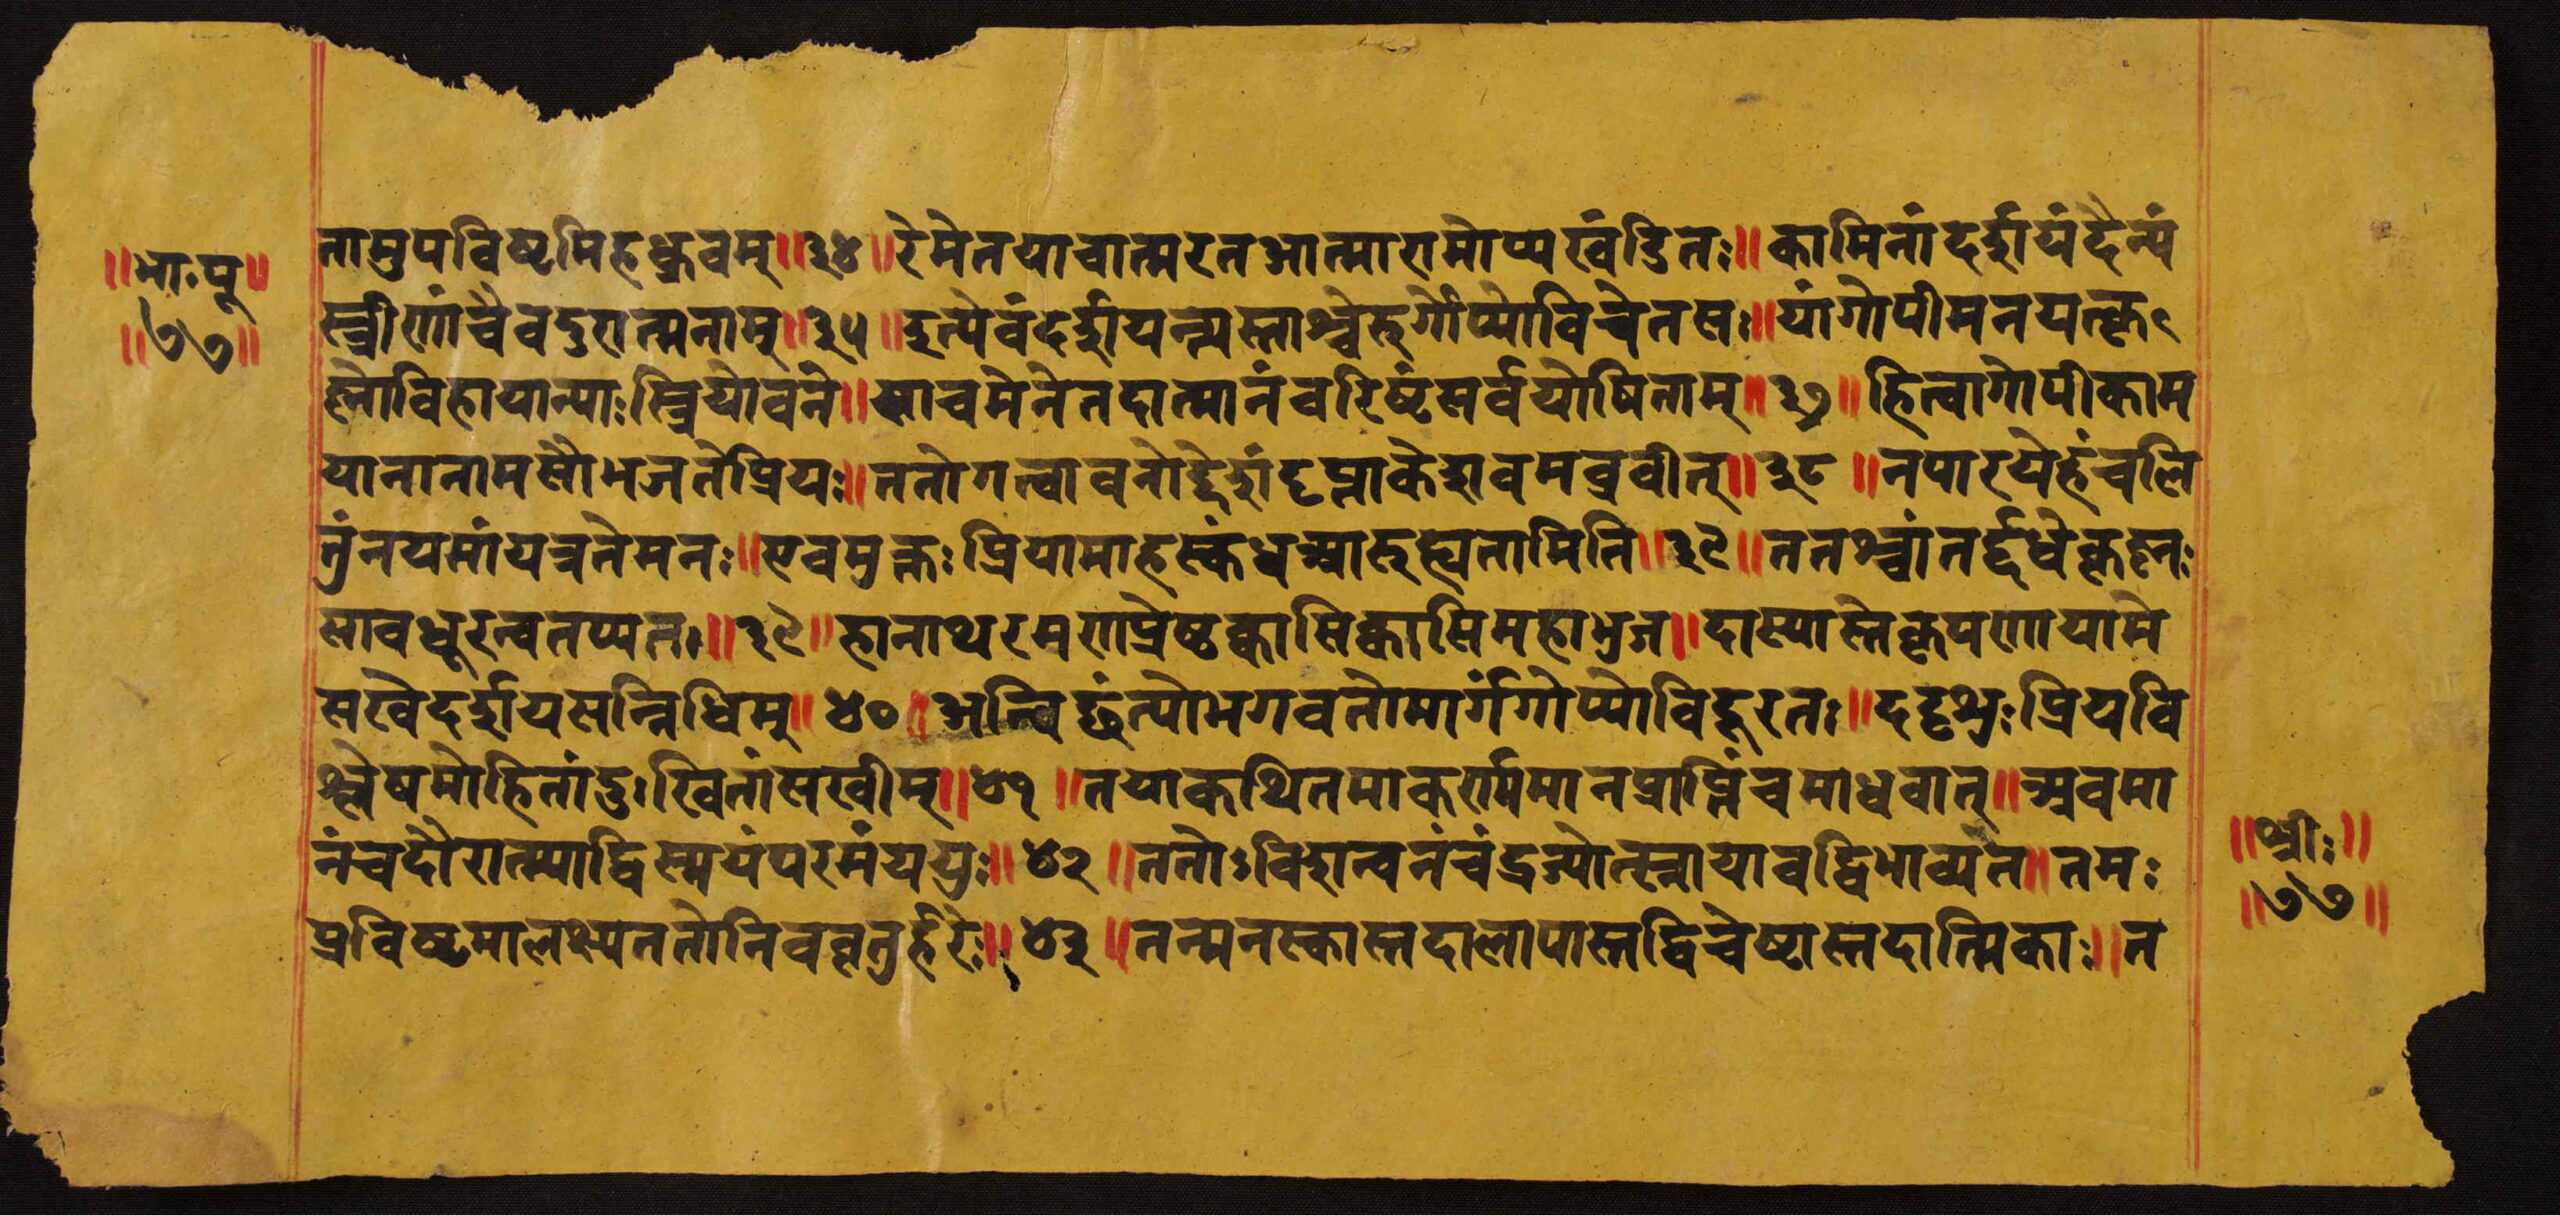 ॥भा॰पू॥
॥७७॥
तामुपविष्टमिहध्रुवम्॥३४॥रेमेतयाचात्मरतआत्मारामोप्यखंडितः॥कामिनांदर्शयंदैन्यं
स्त्रीणांचैवदुरात्मनाम्॥३५॥इत्येवंदर्शयन्त्यस्ताश्चेरुर्गोप्योविचेतसः॥यांगोपीमनयत्कृ
ष्णोविहायान्याःस्त्रियोवने॥साचमेनेतदात्मानंवरिष्टंसर्वयोषिताम्॥३७॥हित्वागोपीकाम
यानानामसौभजतेप्रियः॥ततोगत्वावनोद्देशंदृप्ताकेशवमब्रवीत्॥३८॥नपारयेहंचलि
तुंनयमांयत्रतेमनः॥एवमुक्तःप्रियामाहस्कंधआरुह्यतामिति॥३९॥ततश्चांतर्द्दधेकृष्णः
सावधूरन्वतप्यत॥३९॥हानाथरमणप्रेष्ठक्वासिक्वासिमहाभुज॥दास्यास्तेकृपणायामे
सखेदर्शयसन्निधिम्॥४०॥अन्विछंत्योभगवतोमार्गंगोप्योविदूरतः॥ददृशुःप्रियवि
श्लेषमोहितांदुःखितांसखीम्॥४१॥तयाकथितमाकर्ण्यमानप्राप्तिंचमाधवात्॥अवमा
नंचदौरात्म्याद्विस्मयंपरमंययुः॥४२॥ततोऽविशन्वनंचंद्रज्योत्स्नायावद्विभाव्यत॥तमः
प्रविष्टमालक्ष्यततोनिववृतुर्हरेः॥४३॥तन्मनस्कास्तदालापास्तद्विचेष्टास्तदात्मिकाः॥त
॥श्रीः॥
॥७७॥